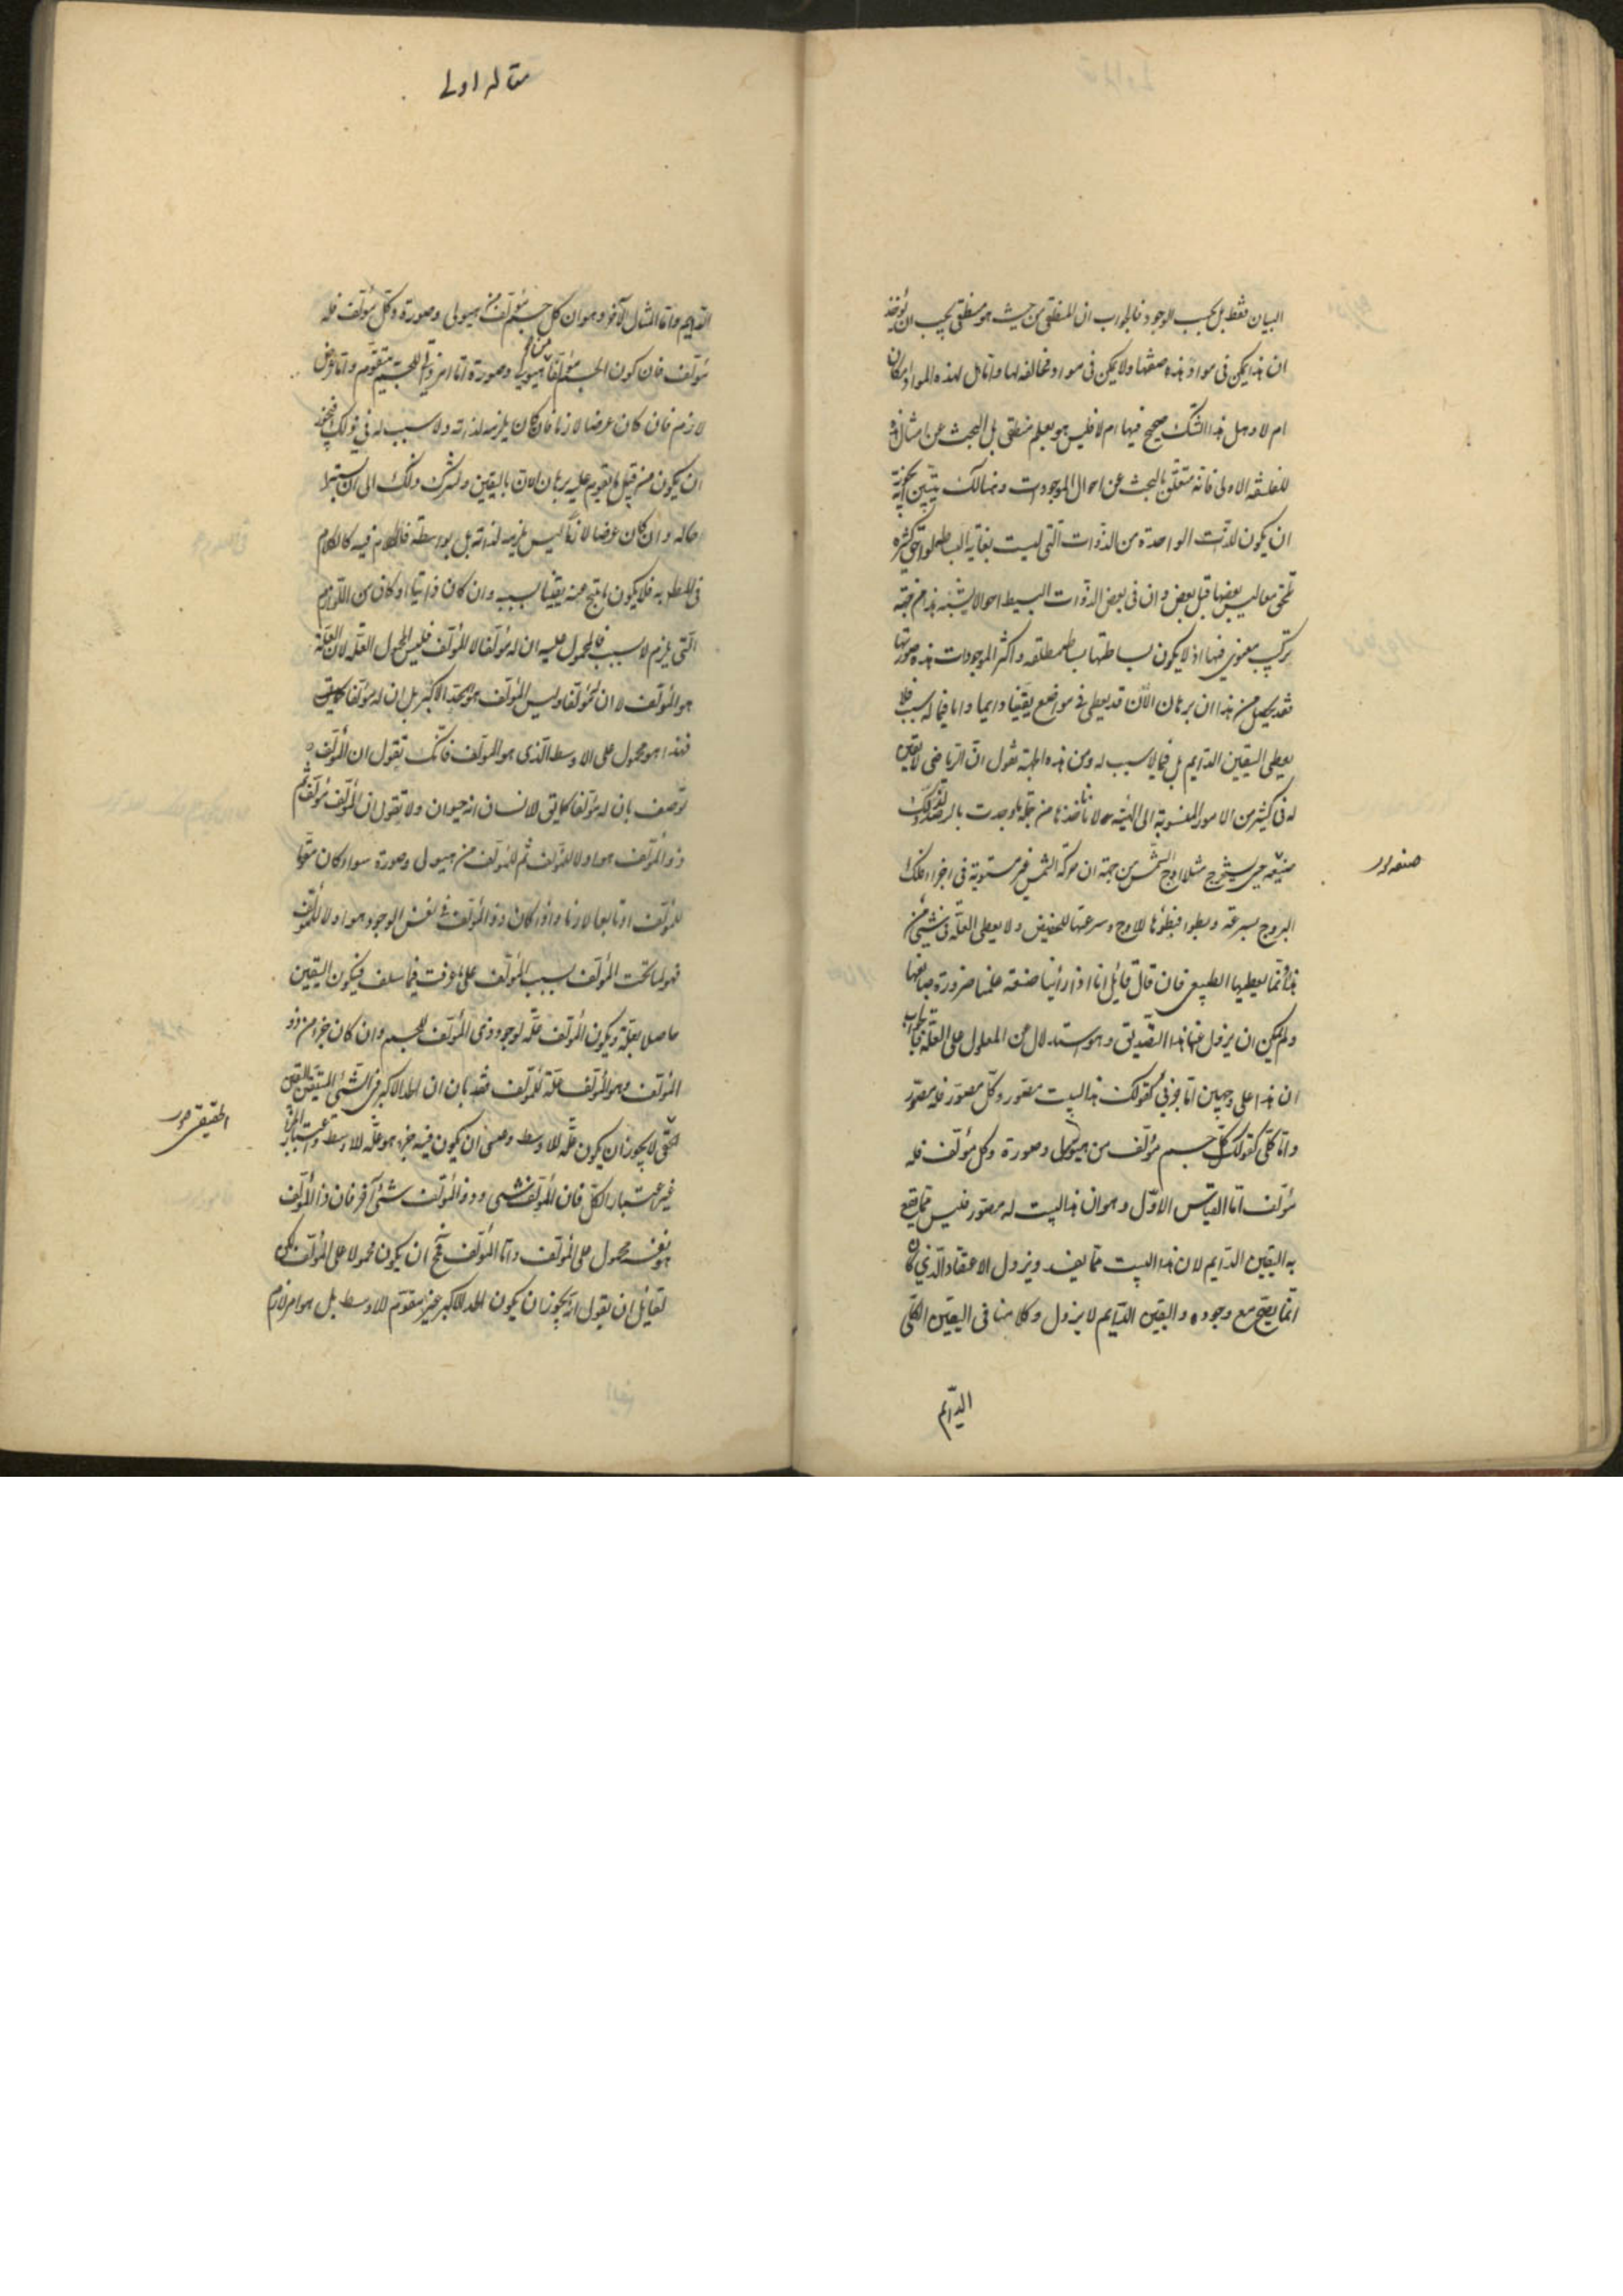 البيان فقط بل بحسب الوجود فالجواب ان المنطقى من حيث هو منطقى يجب ان يؤخذ
ان هذا يمكن فى مواد هذه صفتها ولا يمكن فى مواد مخالفه لها واما هل لهذه المواد امكان
ام لا وهل هذا الشك صحيح فيها ام لا فليس هو بعلم منطقى بل البحث عن امثال هذه
للفلسفه الاولى فانه متعلق بالبحث عن احوال الموجودات وهنالك يتبين
ان يكون للذات الواحدة من الذوات التى ليست بغاية البساطه لواحق كثيره
تلحق معا ليس بعضها قبل بعض وان فى بعض الذوات البسيط احوالا يشبه هذا من جهة
تركيب معنوى فيها اذ لا يكون بساطتها بساطه مطلقه واكثر الموجودات هذه صورتها
فقد يحصل من هذا ان برهان الان قد يعطى فى مواضع يقينا دايما واما فيما له سبب فلا
يعطى اليقين الدايم بل فيما لا سبب له ومن هذه الجهة نقول ان الرياضى لا يقين
له فى كثير من الامور المنسوبة الى الهيئة لانه ياخذها من جهة ما وجدت بالرصد وذلك
حين يستخرج مثلا اوج الشمس من جهة ان حركة الشمس غير مستوية فى اجزاء فلك
البروج بسرعة وبطوء فبطؤها للاوج وسرعتها للحضيض ولا يعطى العلة فى شىء من
هذا انما يعطيها الطبيعى فان قال قائل انا اذا رأينا صنعة علمنا ضرورة صانعها
ولم يمكن ان يزول عنا هذا التصديق وهو استدلال من المعلول على العلة فالجواب
ان هذا على وجهين اما جزئى كقولك هذا البيت مصور وكل مصور فله مصور
واما كلى كقولك كل جسم مؤلف من هيولى وصورة وكل مؤلف فله
مؤلف اما القياس الاول وهو ان هذا البيت له مصور فليس مما يقع
به اليقين الدايم لان هذا البيت مما يفسد ويزول الاعتقاد الذى كان
انما يصح مع وجوده واليقين الدايم لا يزول وكلامنا فى اليقين الكلى
الدايم
مقاله اولى
الدايم واما المثال الآخر وهو ان كل جسم مؤلف من هيولى وصورة وكل مؤلف فله
مؤلف فان كون الجسم مؤلفا من هيولى وصورة اما امر ذاتى للجسم متقوم واما عرض
لازم فان كان عرضا لازما فان كان يلزمه لذاته ولا سبب له فى ذلك فيجوز
ان يكون من قبيل ما يقوم عليه برهان الان باليقين ولنترك ذلك الى ان نستبرأ
حاله وان كان عرضا لازما ليس يلزمه لذاته بل بواسطة فالكلام فيه كالكلام
فى المطلوب به فلا يكون ما ينتج عنه يقينا بسببه وان كان ذاتيا او كان من اللوازم
التى يلزم لا بسبب فالمحمول عليه ان له مؤلفا لا المؤلف فليس المحمول العلة لان العلة
هو المؤلف لا ان له مؤلفا وليس المؤلف هو الحد الاكبر بل ان له مؤلفا
فهذا هو محمول على الاوسط الذى هو المؤلف فانك تقول ان المؤلف
يوصف بان له مؤلفا كما يوصف الانسان انه حيوان ولا تقول ان المؤلف مؤلف ثم
ذو المؤلف هو اولا للمؤلف ثم للمؤلف من هيولى وصورة سواء كان مقوما
للمؤلف او تابعا لازما واذا كان ذو المؤلف فى نفس الوجود هو اولا للمؤلف
فهو لما تحت المؤلف بسبب المؤلف على ما عرفت فيما سلف فيكون اليقين
حاصلا بعلة ويكون المؤلف علة لوجود ذى المؤلف للجسم وان كان جزء من ذو
المؤلف وهو المؤلف علة للمؤلف فقد بان ان الحد الاكبر فى الشىء المتيقن اليقين
لا يجوز ان يكون علة للاوسط وعسى ان يكون فيه جزء هو علة للاوسط واعتبار الجزء
غير اعتبار الكل فان المؤلف شىء وذو المؤلف شىء آخر فان ذا المؤلف
هو نفسه محمول على المؤلف واما المؤلف فمح ان يكون محمولا على المؤلف لكن
لقائل ان يقول انه يجوز ان يكون الحد الاكبر غير مقوم للاوسط بل هو امر لازم
الحقيقى